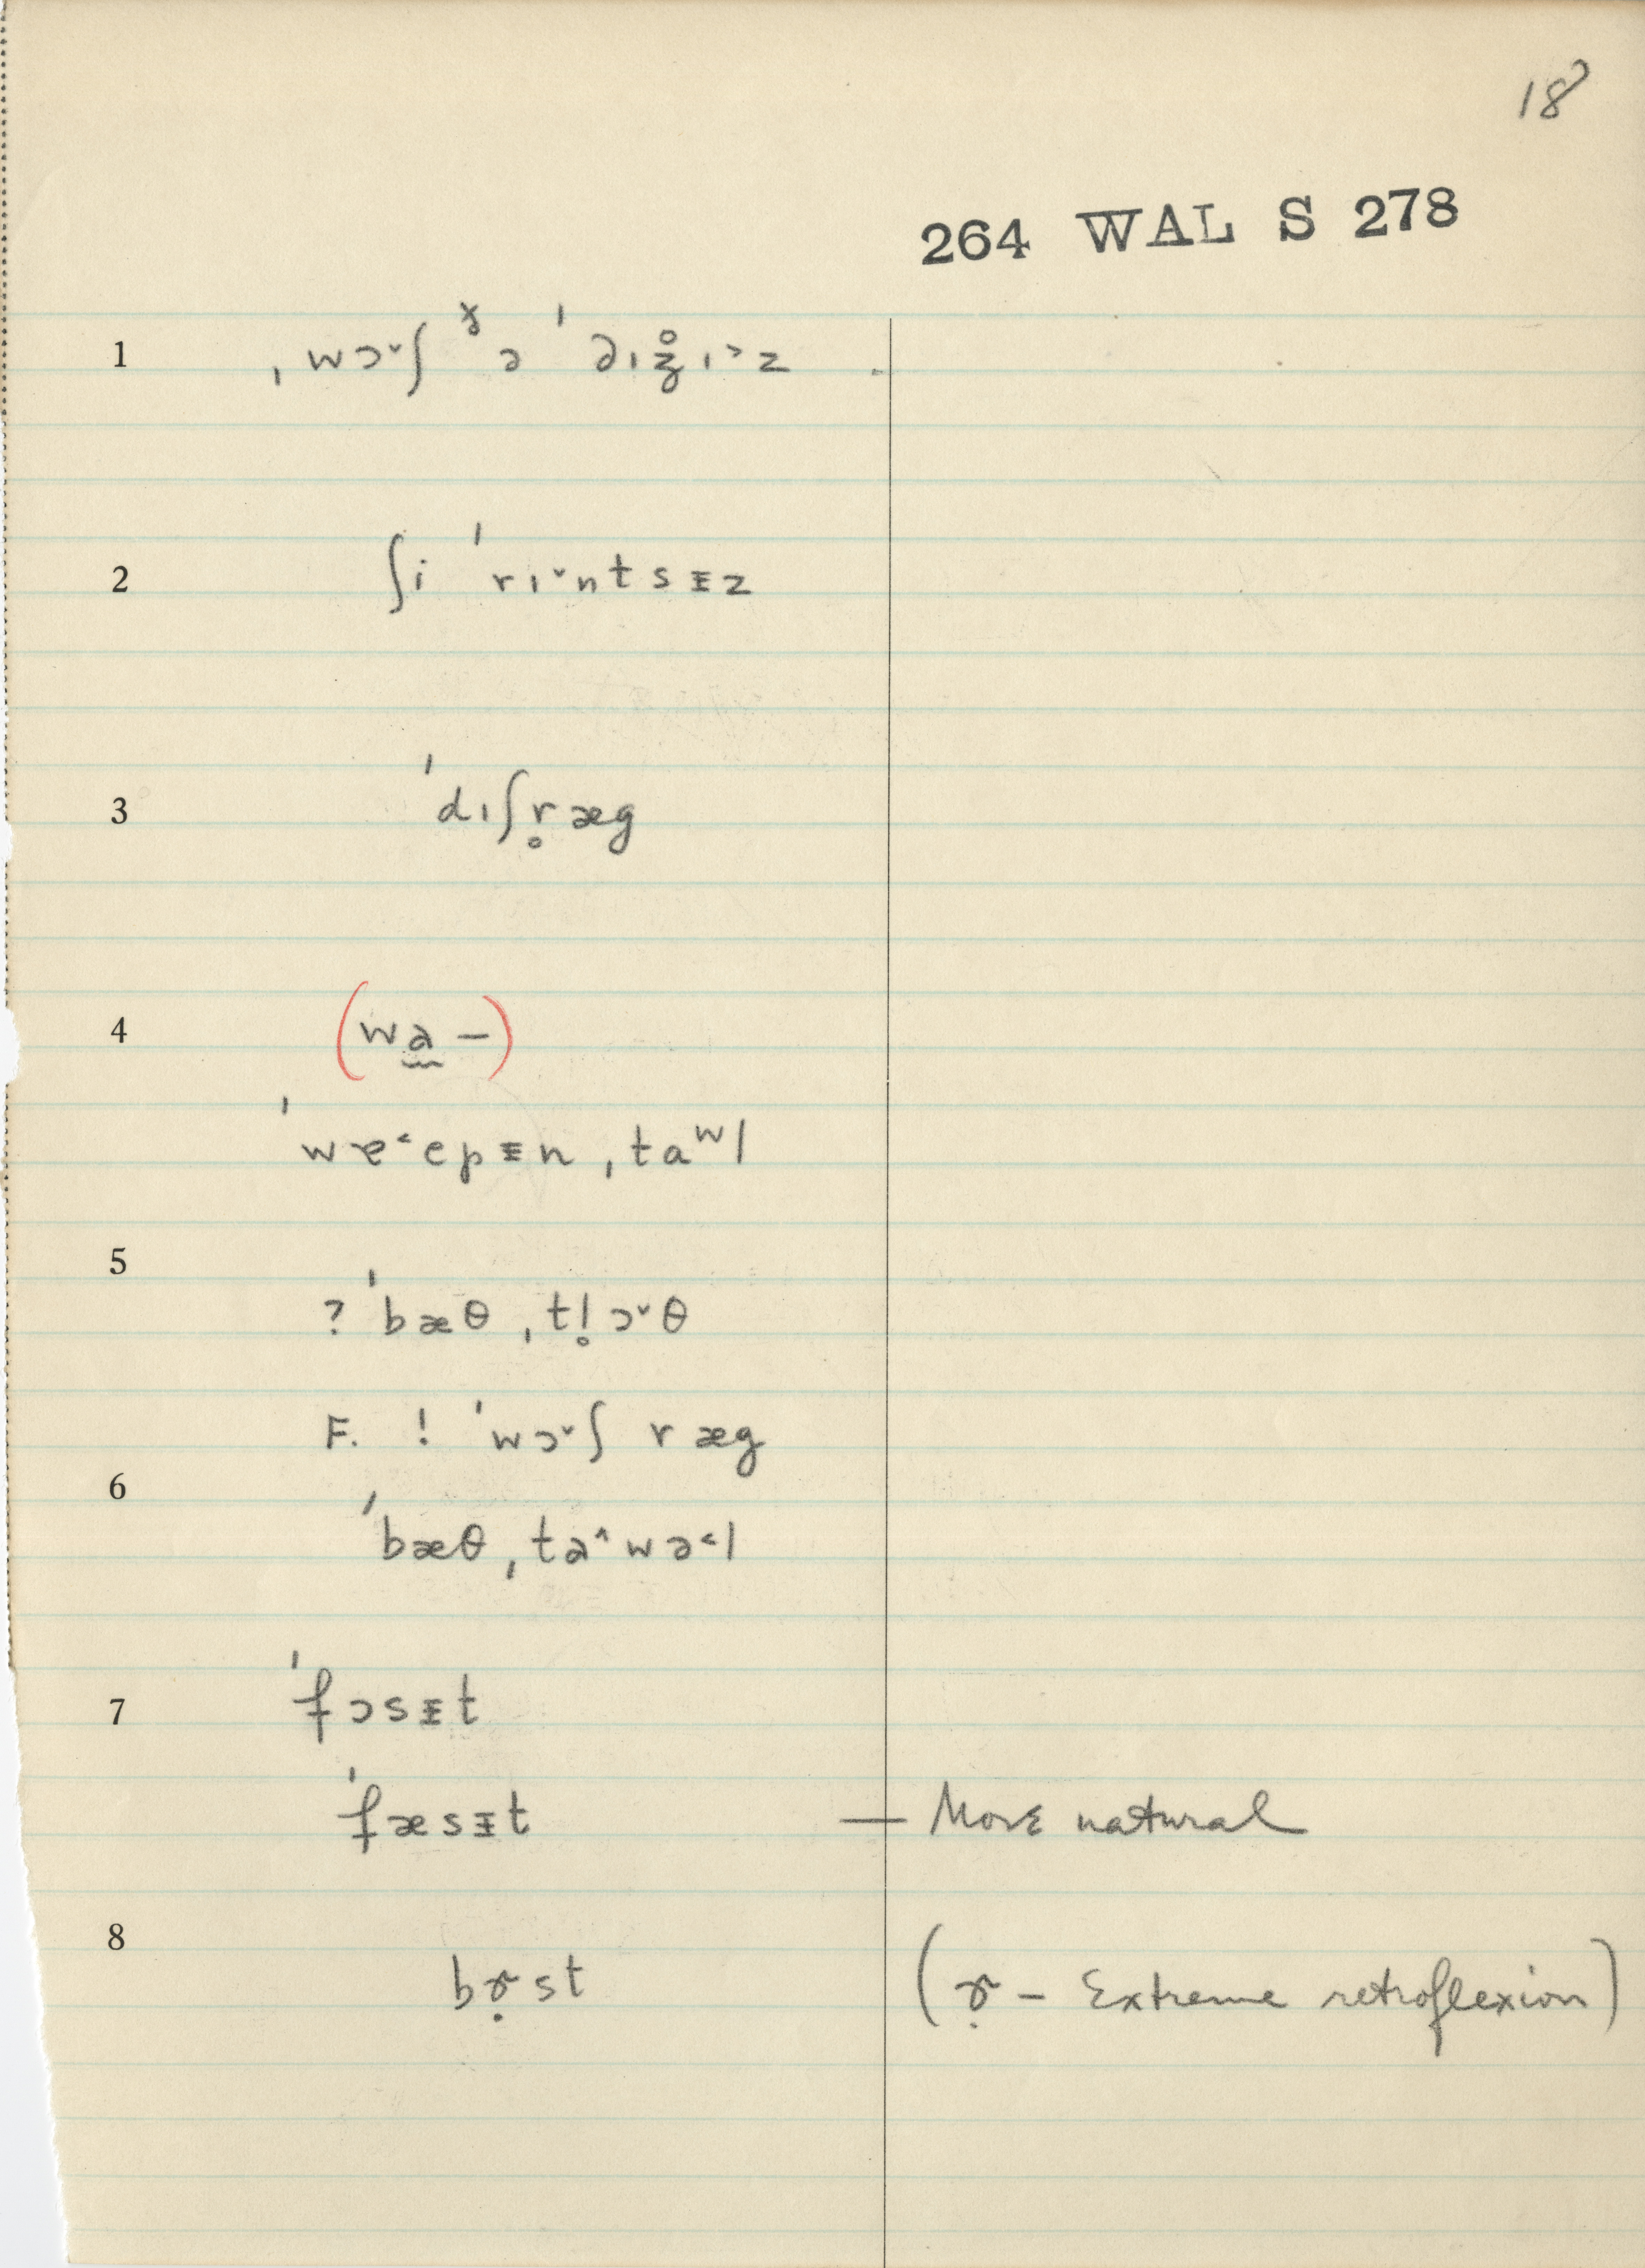 18
264 WAL S 278
1 ˌwɔ˅ʃ ᵹə ˈ∂ɪʒ̊ɪ˃z
2 ʃi ˈrɪ˅ntsᵻz
3 ˈdɪʃr̥æg
4 (wa̰ –)
ˈwɐ˂epᵻn ˌtaʷl
5
? ˈbæθ ˌtl̥ɔ˅θ
F. ! ˈwɔ˅ʃ ræg
6
ˈbæθ ˌta˄wə˂l
7 ˈfɔsᵻt
ˈfæsᵻt — More natural
8
bɚ̣st (ɚ̣ – Extreme retroflexion)